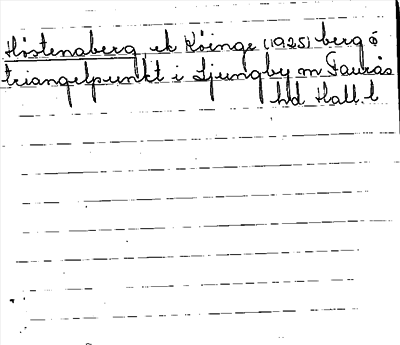 Höstenaberg, ek Köinge (1925) berg o
triangelpunkt i Ljungby m Faurås
hd Hall. l